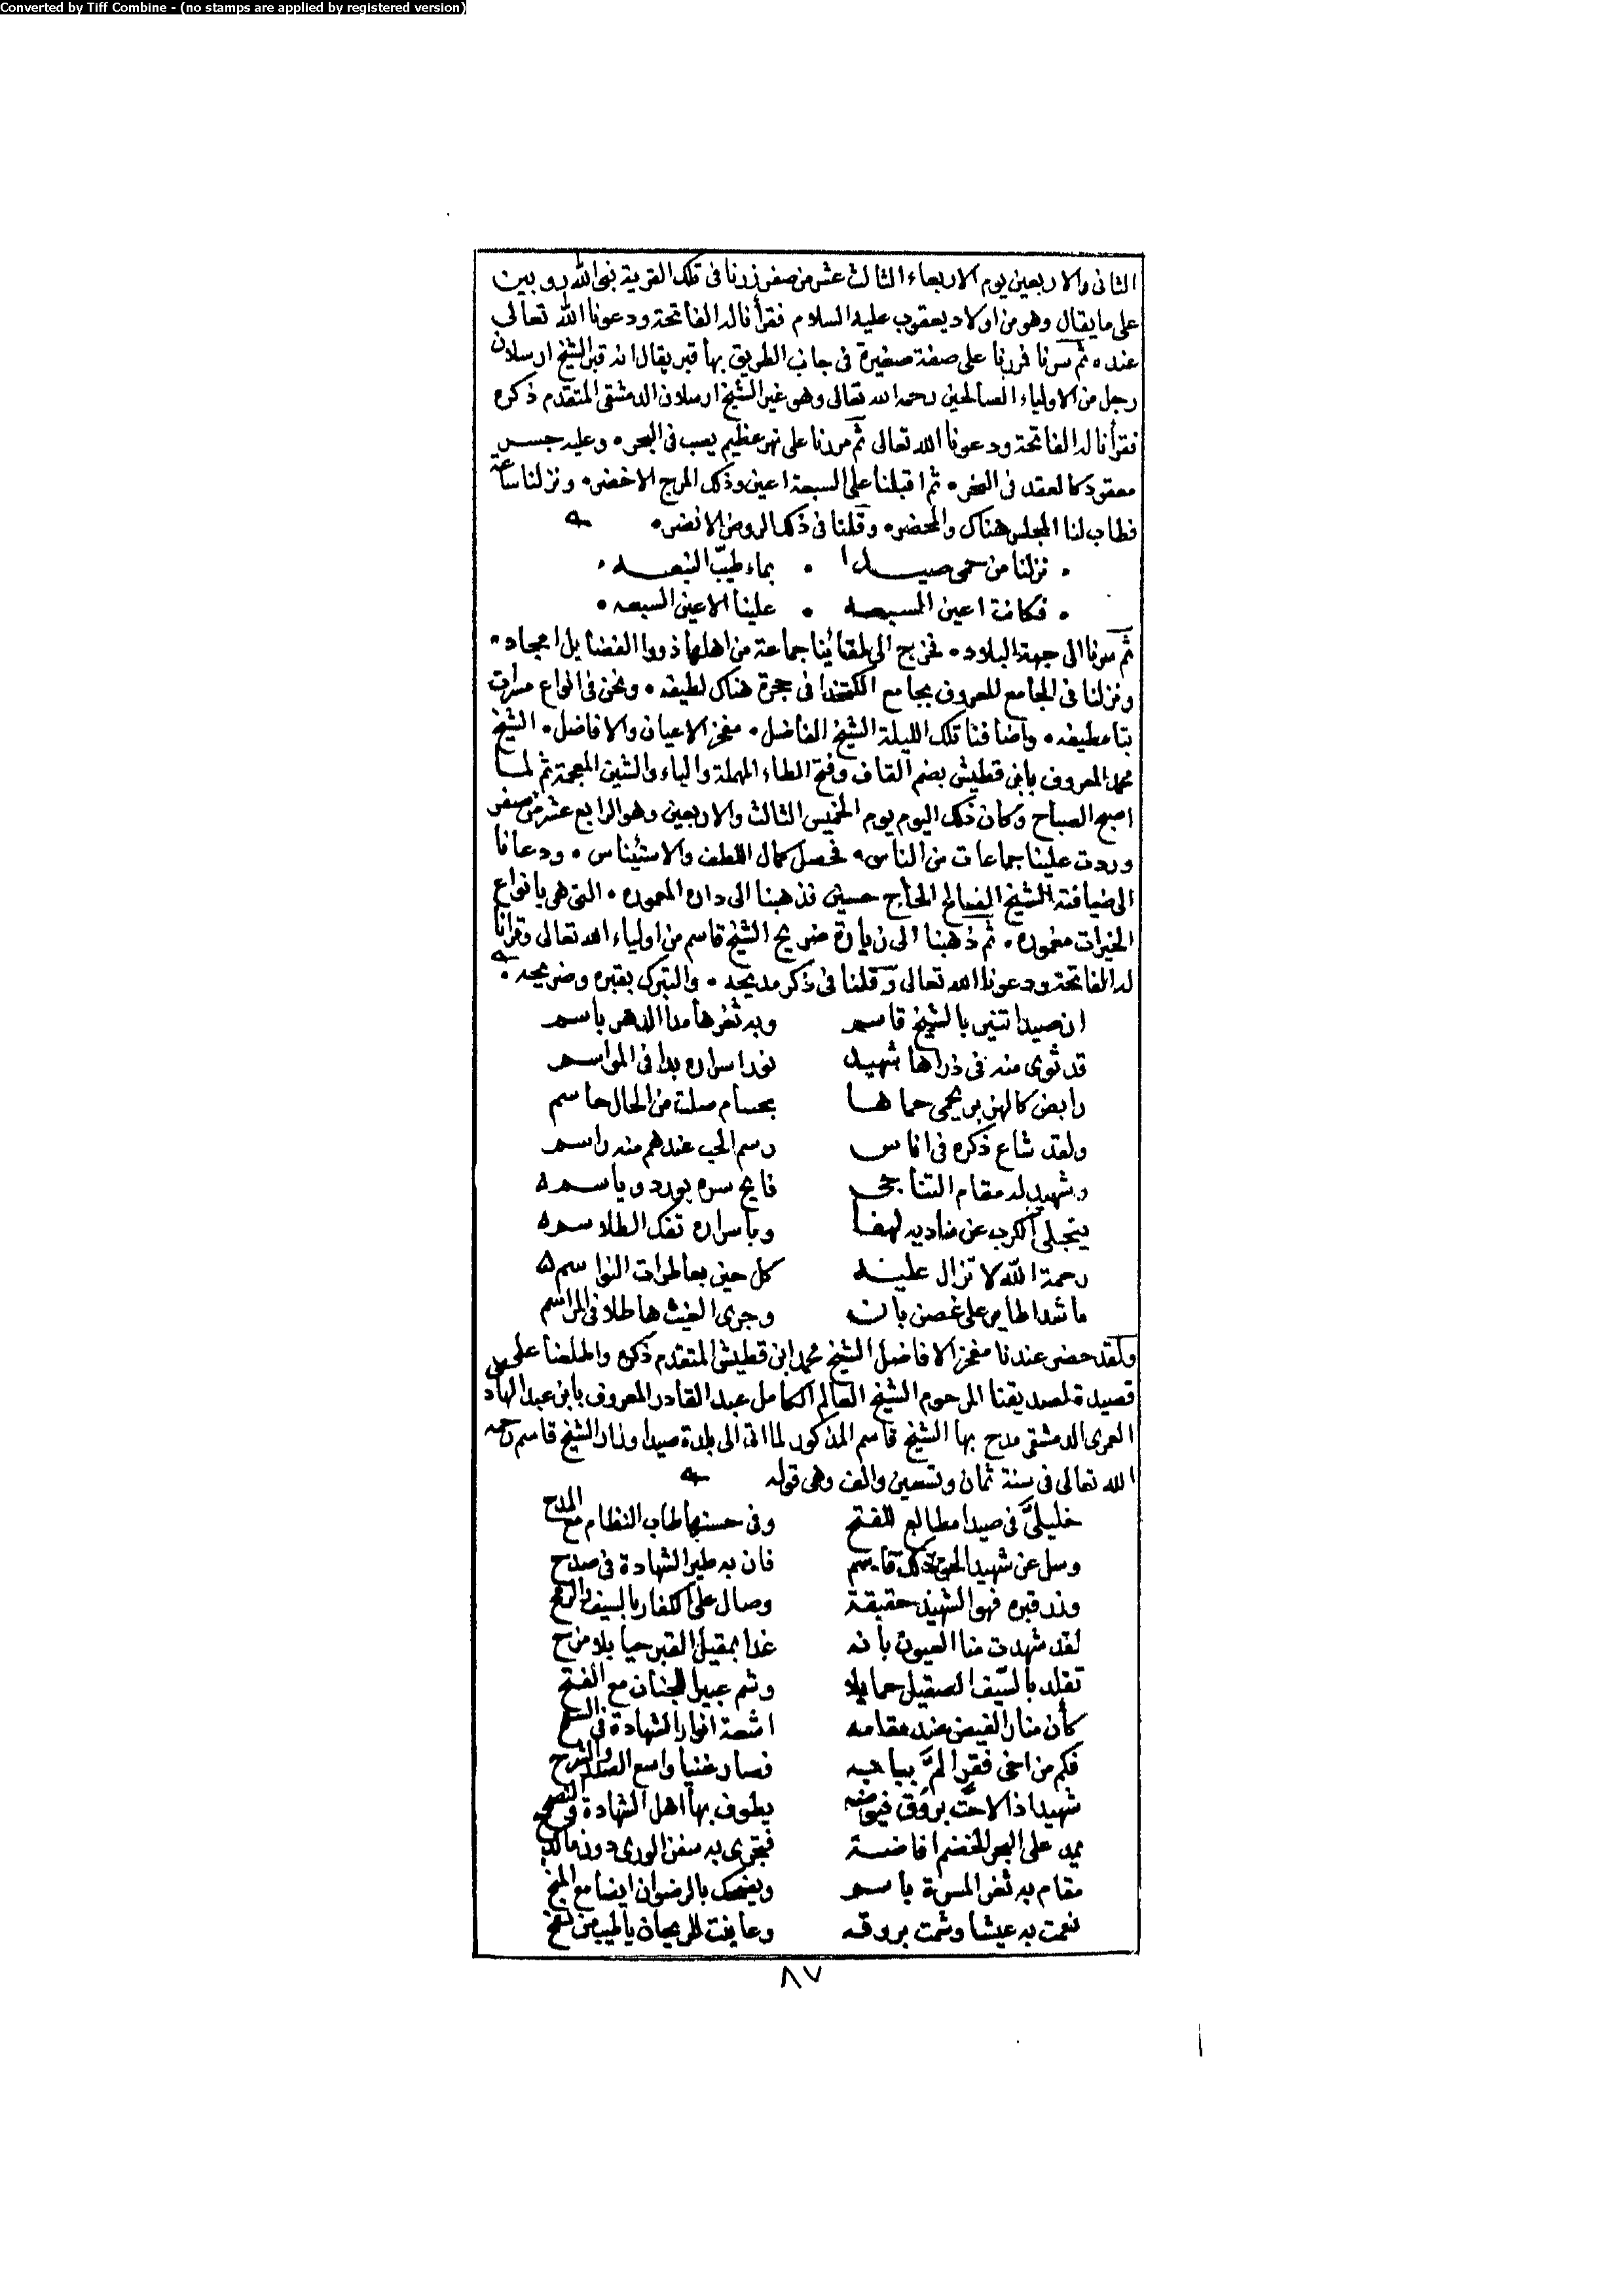 Converted by Tiff Combine - (no stamps are applied by registered version)
الثانى والاربعين يوم الاربعاء الثالث عشر من صفر زرنا فى تلك القرية نبى الله روبين
على ما يقال وهو من اولاد يعقوب عليه السلام فقرأنا له الفاتحة ودعونا الله تعالى
عنده ثم سرنا فمررنا على صفة صغيرة فى جانب الطريق بها قبر يقال انه قبر الشيخ ارسلان
رجل من الاولياء الصالحين رحمه الله تعالى وهو غير الشيخ ارسلان الدمشقى المتقدم ذكره
فقرأنا له الفاتحة ودعونا الله تعالى ثم مررنا على نهر عظيم يصب فى البحر • وعليه جسر
معقود كالعقد فى النحر • ثم اقبلنا على السبعة اعين وذلك المرج الاخضر • ونزلنا ساعة
فطاب لنا المجلس هناك والمحضر • وقلنا فى ذلك الروض الانضر •
• نزلنا من حمى صيدا • بماء طيّب النبعه •
• فكانت اعين السبعه • علينا الاعين السبعه •
ثم سرنا الى جهة البلاد • فخرج الى لقائنا جماعة من اهلها ذووا الفضايل امجاد •
ونزلنا فى الجامع المعروف بجامع الكتخدا فى حجرة هناك لطيفه • ونحن فى انواع مسرات
بنا مطيفه • واضافنا تلك الليلة الشيخ الفاضل • مفخر الاعيان والافاضل • الشيخ
محمد المعروف بابن قطيش بضم القاف وفتح الطاء المهملة والياء والشين المعجمة ثم لما
اصبح الصباح وكان ذلك اليوم يوم الخميس الثالث والاربعين وهو الرابع عشر من صفر
وردت علينا جماعات من الناس • فحصل كمال اللطف والاستئناس • ودعانا
الى ضيافته الشيخ الصالح الحاج حسين فذهبنا الى داره المعموره • التى هى بانواع
الخيرات مغموره • ثم ذهبنا الى زيارة ضريح الشيخ قاسم من اولياء الله تعالى وقرأنا
له الفاتحة ودعونا الله تعالى وقلنا فى ذكر مديحه • والتبرك بقبره وضريحه •
ان صيدا تثنى بالشيخ قاسم وبه ثغرها مدا الدهر باسم
قد ثوى منه فى ذراها شهيد نور اسراره بدا فى المواسم
رابض كالهزبر يحمى حماها بحسام صلت من الحال حاسم
ولقد شاع ذكره فى اناس رسم الحب عندهم منه راسم
وشهيد له مقام التناجى فايح سره بورد وياسم
ينجلى الكرب عن مناديه لهفا وباسراره تفك الطلاسم
رحمة الله لا تزال عليه كل حين بعاطرات النواسم
ما شدا طاير على غصن بان وجرى الغيث هاطلا فى المراسم
ولقد حضر عندنا مفخر الافاضل الشيخ محمد ابن قطيش المتقدم ذكره واطلعنا على
قصيدة لصديقنا المرحوم الشيخ العالم الكامل عبد القادر المعروف بابن عبد الهاد
العمرى الدمشقى مدح بها الشيخ قاسم المذكور لما اتى الى بلدة صيدا وزار الشيخ قاسم رحمه
الله تعالى فى سنة ثمان وتسعين والف وهى قوله
خليلىّ فى صيدا مطالع للفتح وفى حسنها طاب النظام مع المدح
وسل عن شهيد الحى ذلك قاسم فان به طير الشهادة فى صدح
وزر قبره فهو الشهيد حقيقة وصال على الكفار بالسيف والرمح
لقد شهدت منا العيون بانه غدا بمقيل القبر حيا بلا مزح
تقلد بالسّيف الصقيل حمايلا وشم عبير الجنان مع الفتح
كأن منار الفيض عند مقامه اشعة انوار الشهادة فى
فكم من اخى فقر المّ ببابه فصار غنيا واسع الصدر والشرح
شهيد اذا لاحت بروق فيوضه يطوف بها اهل الشهادة
يمد على البحر الخضم افاضة فتجرى به سفن الورى دون ما
مقام به ثغر المسرة باسم ويضحك بالرضوان ايضا مع المنح
نعمت به عيشا وشمت بروقه وعاينت للريحان يا طيب من نفح
٨٧